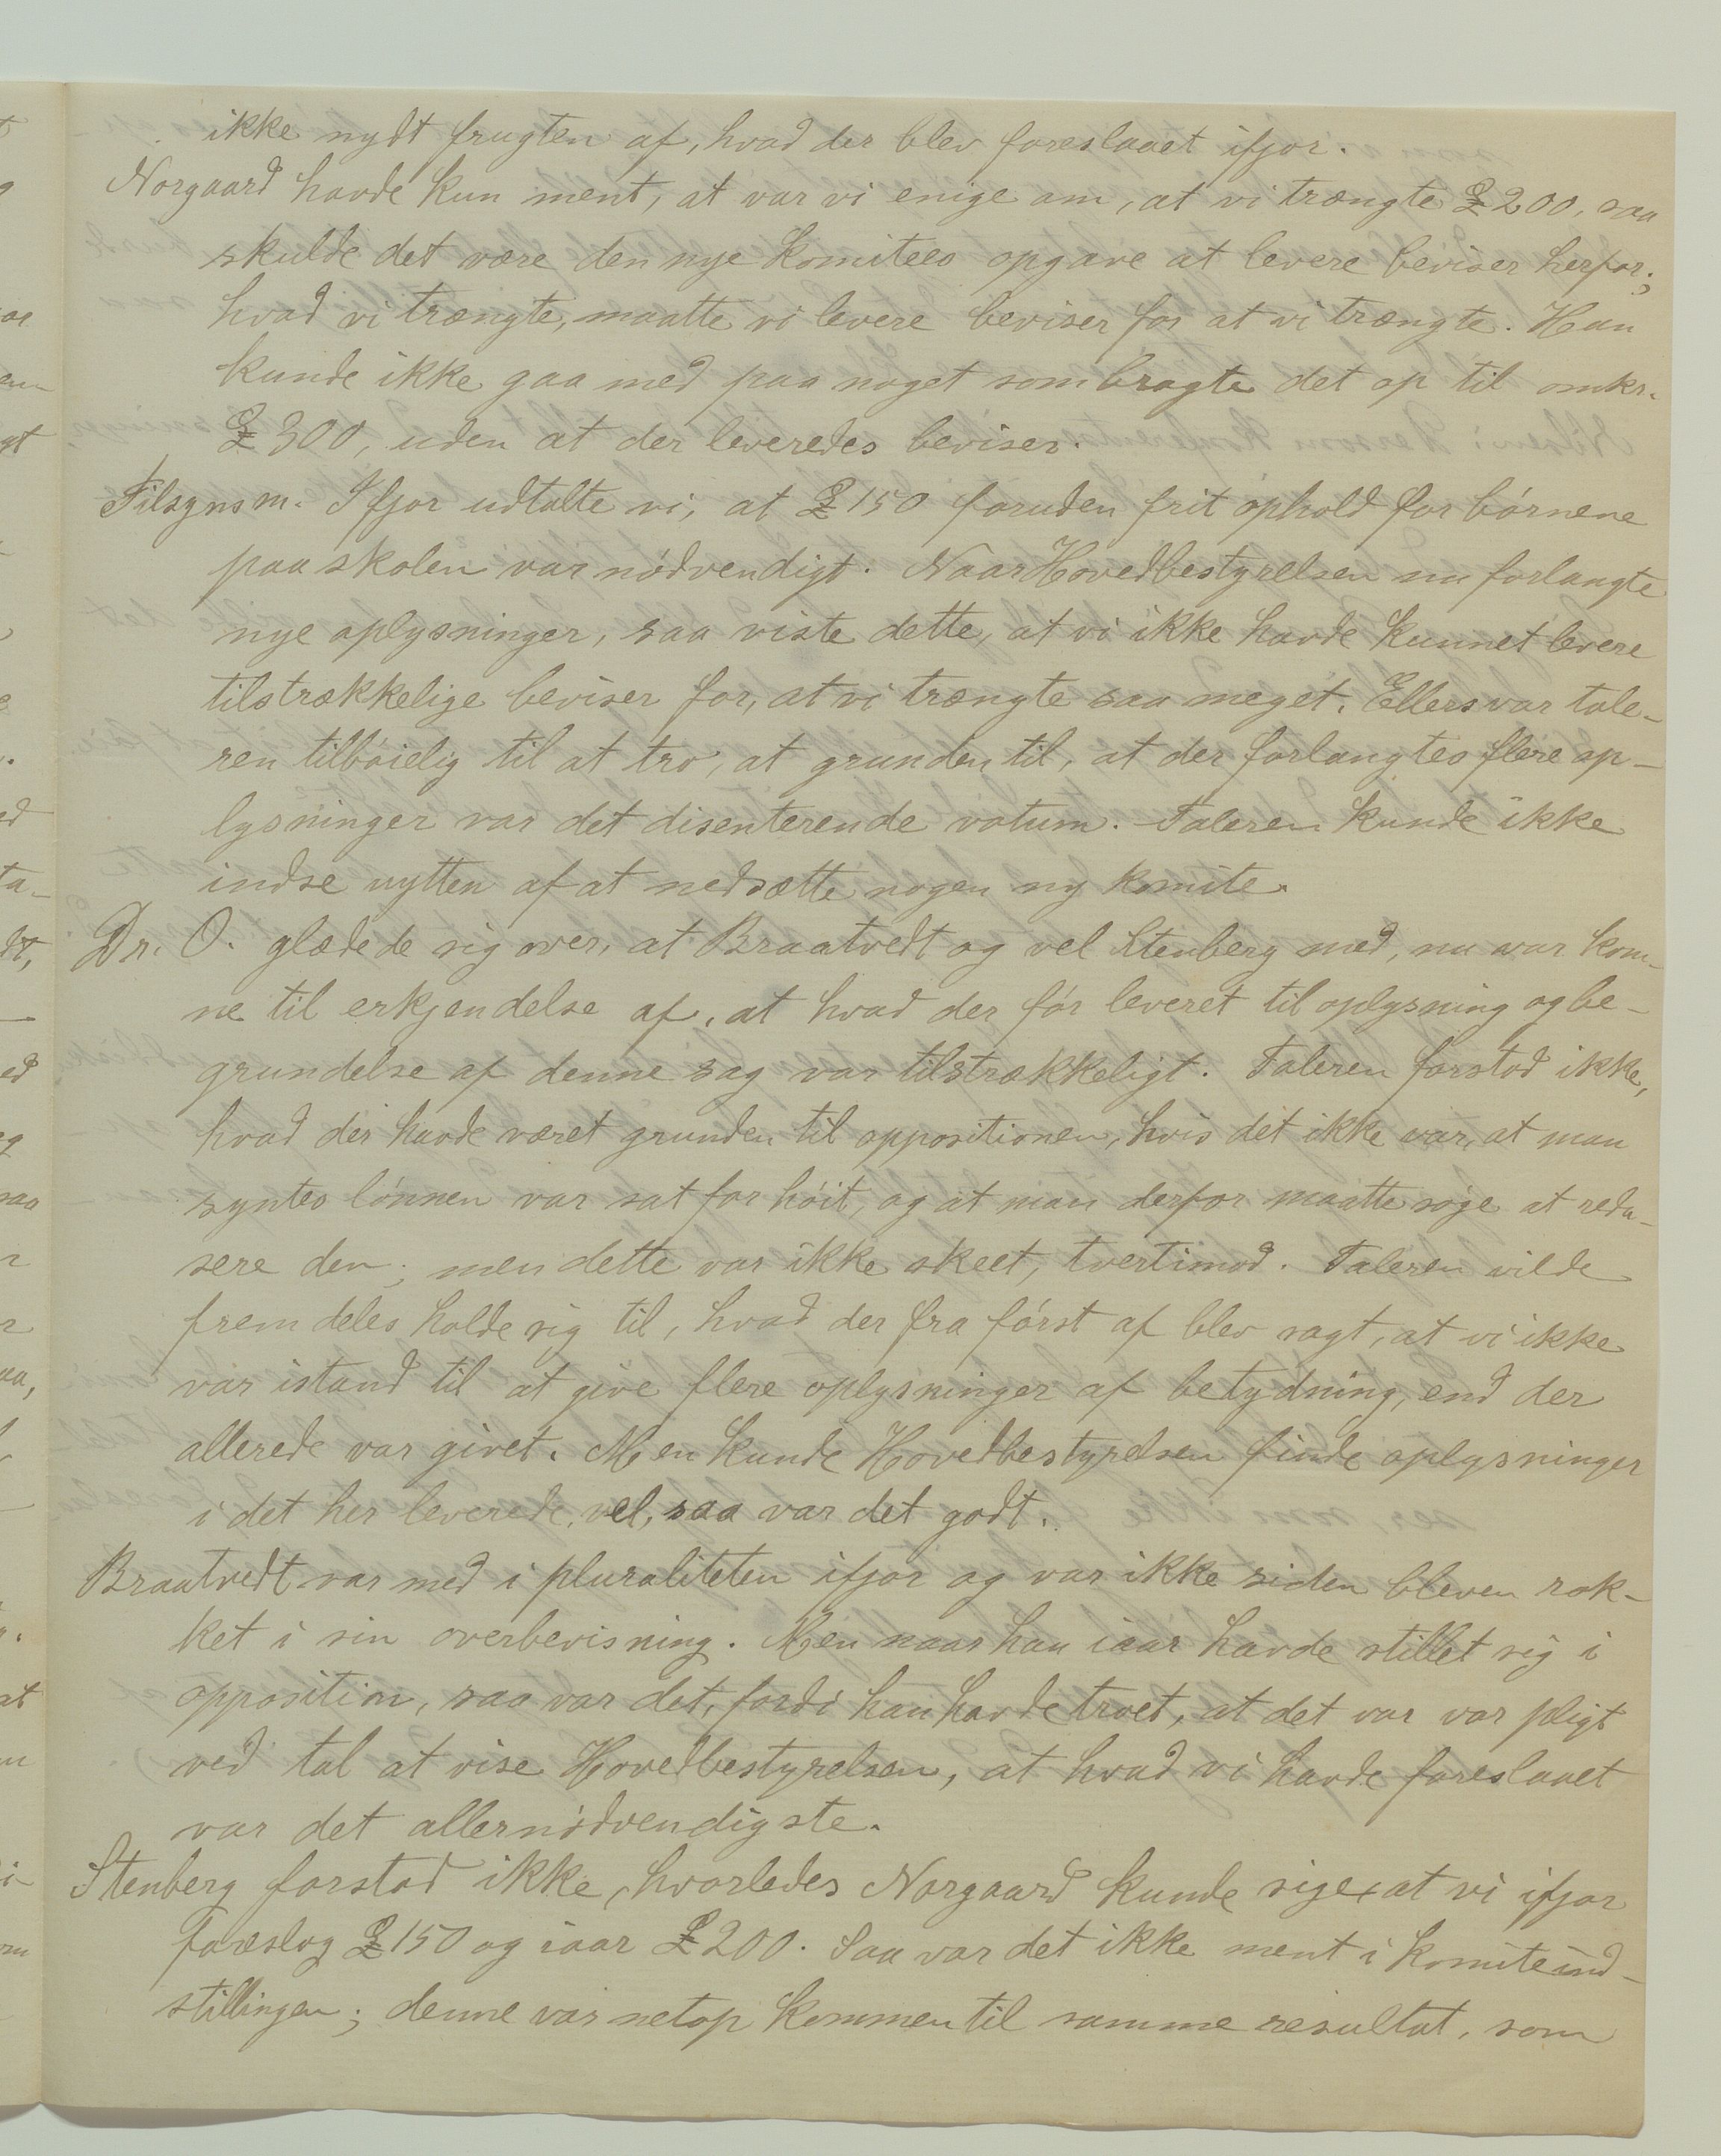 ikke nydt frugten af, hvad der blev foreslaaet ifjor.
Norgaard havde kun ment, at var vi enige om, at vi trængte £200, saa
skulde det være den nye komitees opgave at levere beviser herfor;
hvad vi trængte, maatte vi levere beviser for at vi trængte. Han
kunde ikke gaa med paa noget som bragte det op til omkr.
£300, uden at der leveredes beviser.
Tilsynsm. Ifjor udtalte vi, at £150 foruden frit ophold for börnene
paa skolen var nödvendigt. Naar Hovedbestyrelsen nu forlangte
nye oplysninger, saa viste dette, at vi ikke havde kunnet levere
tilstrækkelige beviser for, at vi trængte saa meget. Ellers var tale-
ren tilböielig til at tro, at grunden til, at der forlangtes flere op-
lysninger var det disenterende votum. Taleren kunde ikke
indse nytten af at nedsætte nogen ny komite.
Dr. O. glædede sig over, at Braatvedt og vel Stenberg med, nu var kom-
ne til erkjendelse af, at hvad der för leveret til oplysning og be-
grundelse af denne sag var tilstrækkeligt. Taleren forstod ikke,
hvad der havde været grunden til oppositionen, hvis det ikke var, at man
syntes lönnen var sat for höit, og at man derfor maatte söge at redu-
sere den; men dette var ikke skeet, tvertimod. Taleren vilde
fremdeles holde sig til, hvad der fra först af blev sagt, at vi ikke
var istand til at give flere oplysninger af betydning, end der
allerede var givet. Men kunde Hovedbestyrelsen finde oplysninger
i det her leverede, vel, saa var det godt.
Braatvedt var med i pluraliteten ifjor og var ikke siden bleven rok-
ket i sin overbevisning. Men naar han iaar havde stillet sig i
opposition, saa var det, fordi han havde troet, at det var vor pligt
ved tal at vise Hovedbestyrelsen, at hvad vi havde foreslaaet
var det allernödvendigste.
Stenberg forstod ikke, hvorledes Norgaard kunde sige, at vi ifjor
foreslog £150 og iaar £200. Saa var det ikke ment i komiteind-
stillingen; denne var netop kommen til samme resultat, som